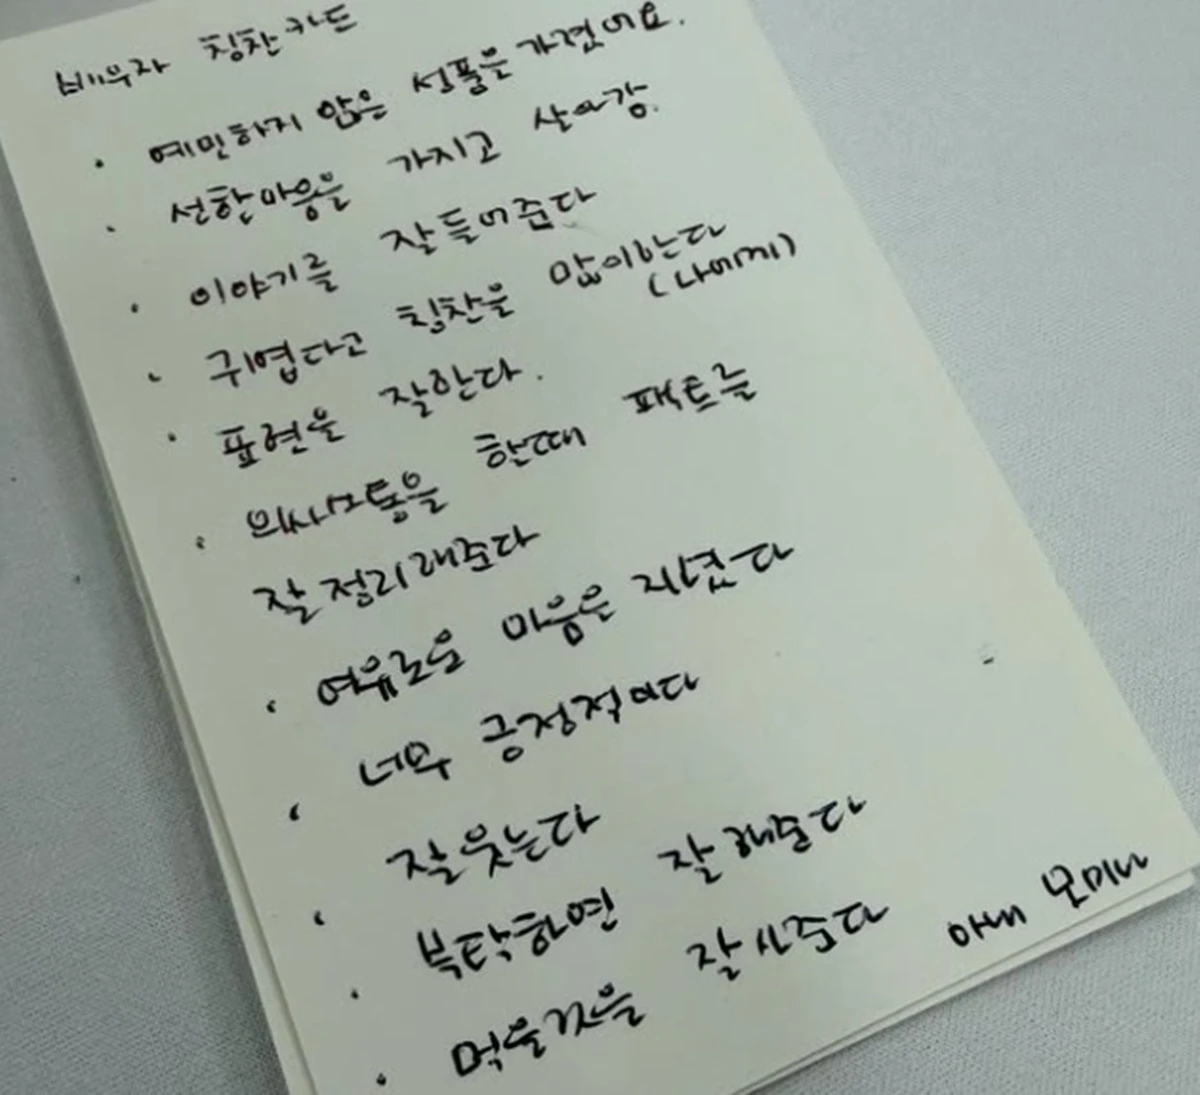 배우자 칭찬카드
· 예민하지 않은 성품은 가졌어요.
· 선한마음을 가지고 살아감.
· 이야기를 잘들어준다
· 귀엽다고 칭찬을 많이한다
(나에게)
· 표현을 잘한다.
· 의사소통을 할때 팩트를
잘 정리해준다
· 여유로운 마음은 지녔다
· 너무 긍정적이다
· 잘웃는다
· 부탁하면 잘해준다
· 먹을것을 잘사준다
아내